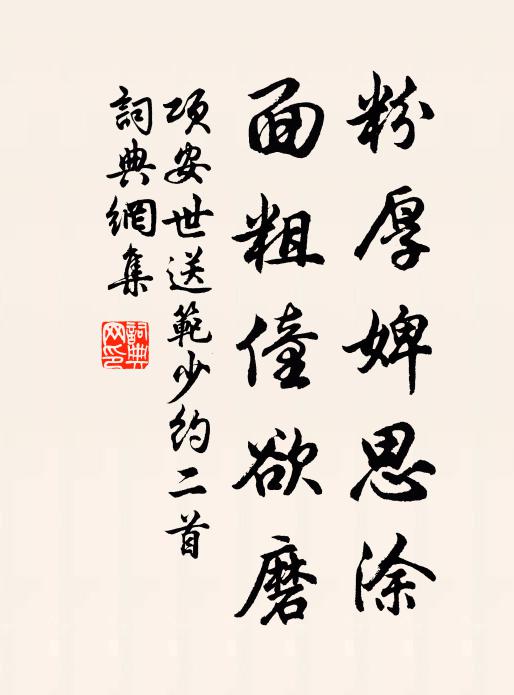 粉厚婢思涂
面粗僮欲磨
项安世送範少约二首
詞典網集
詞典
网印